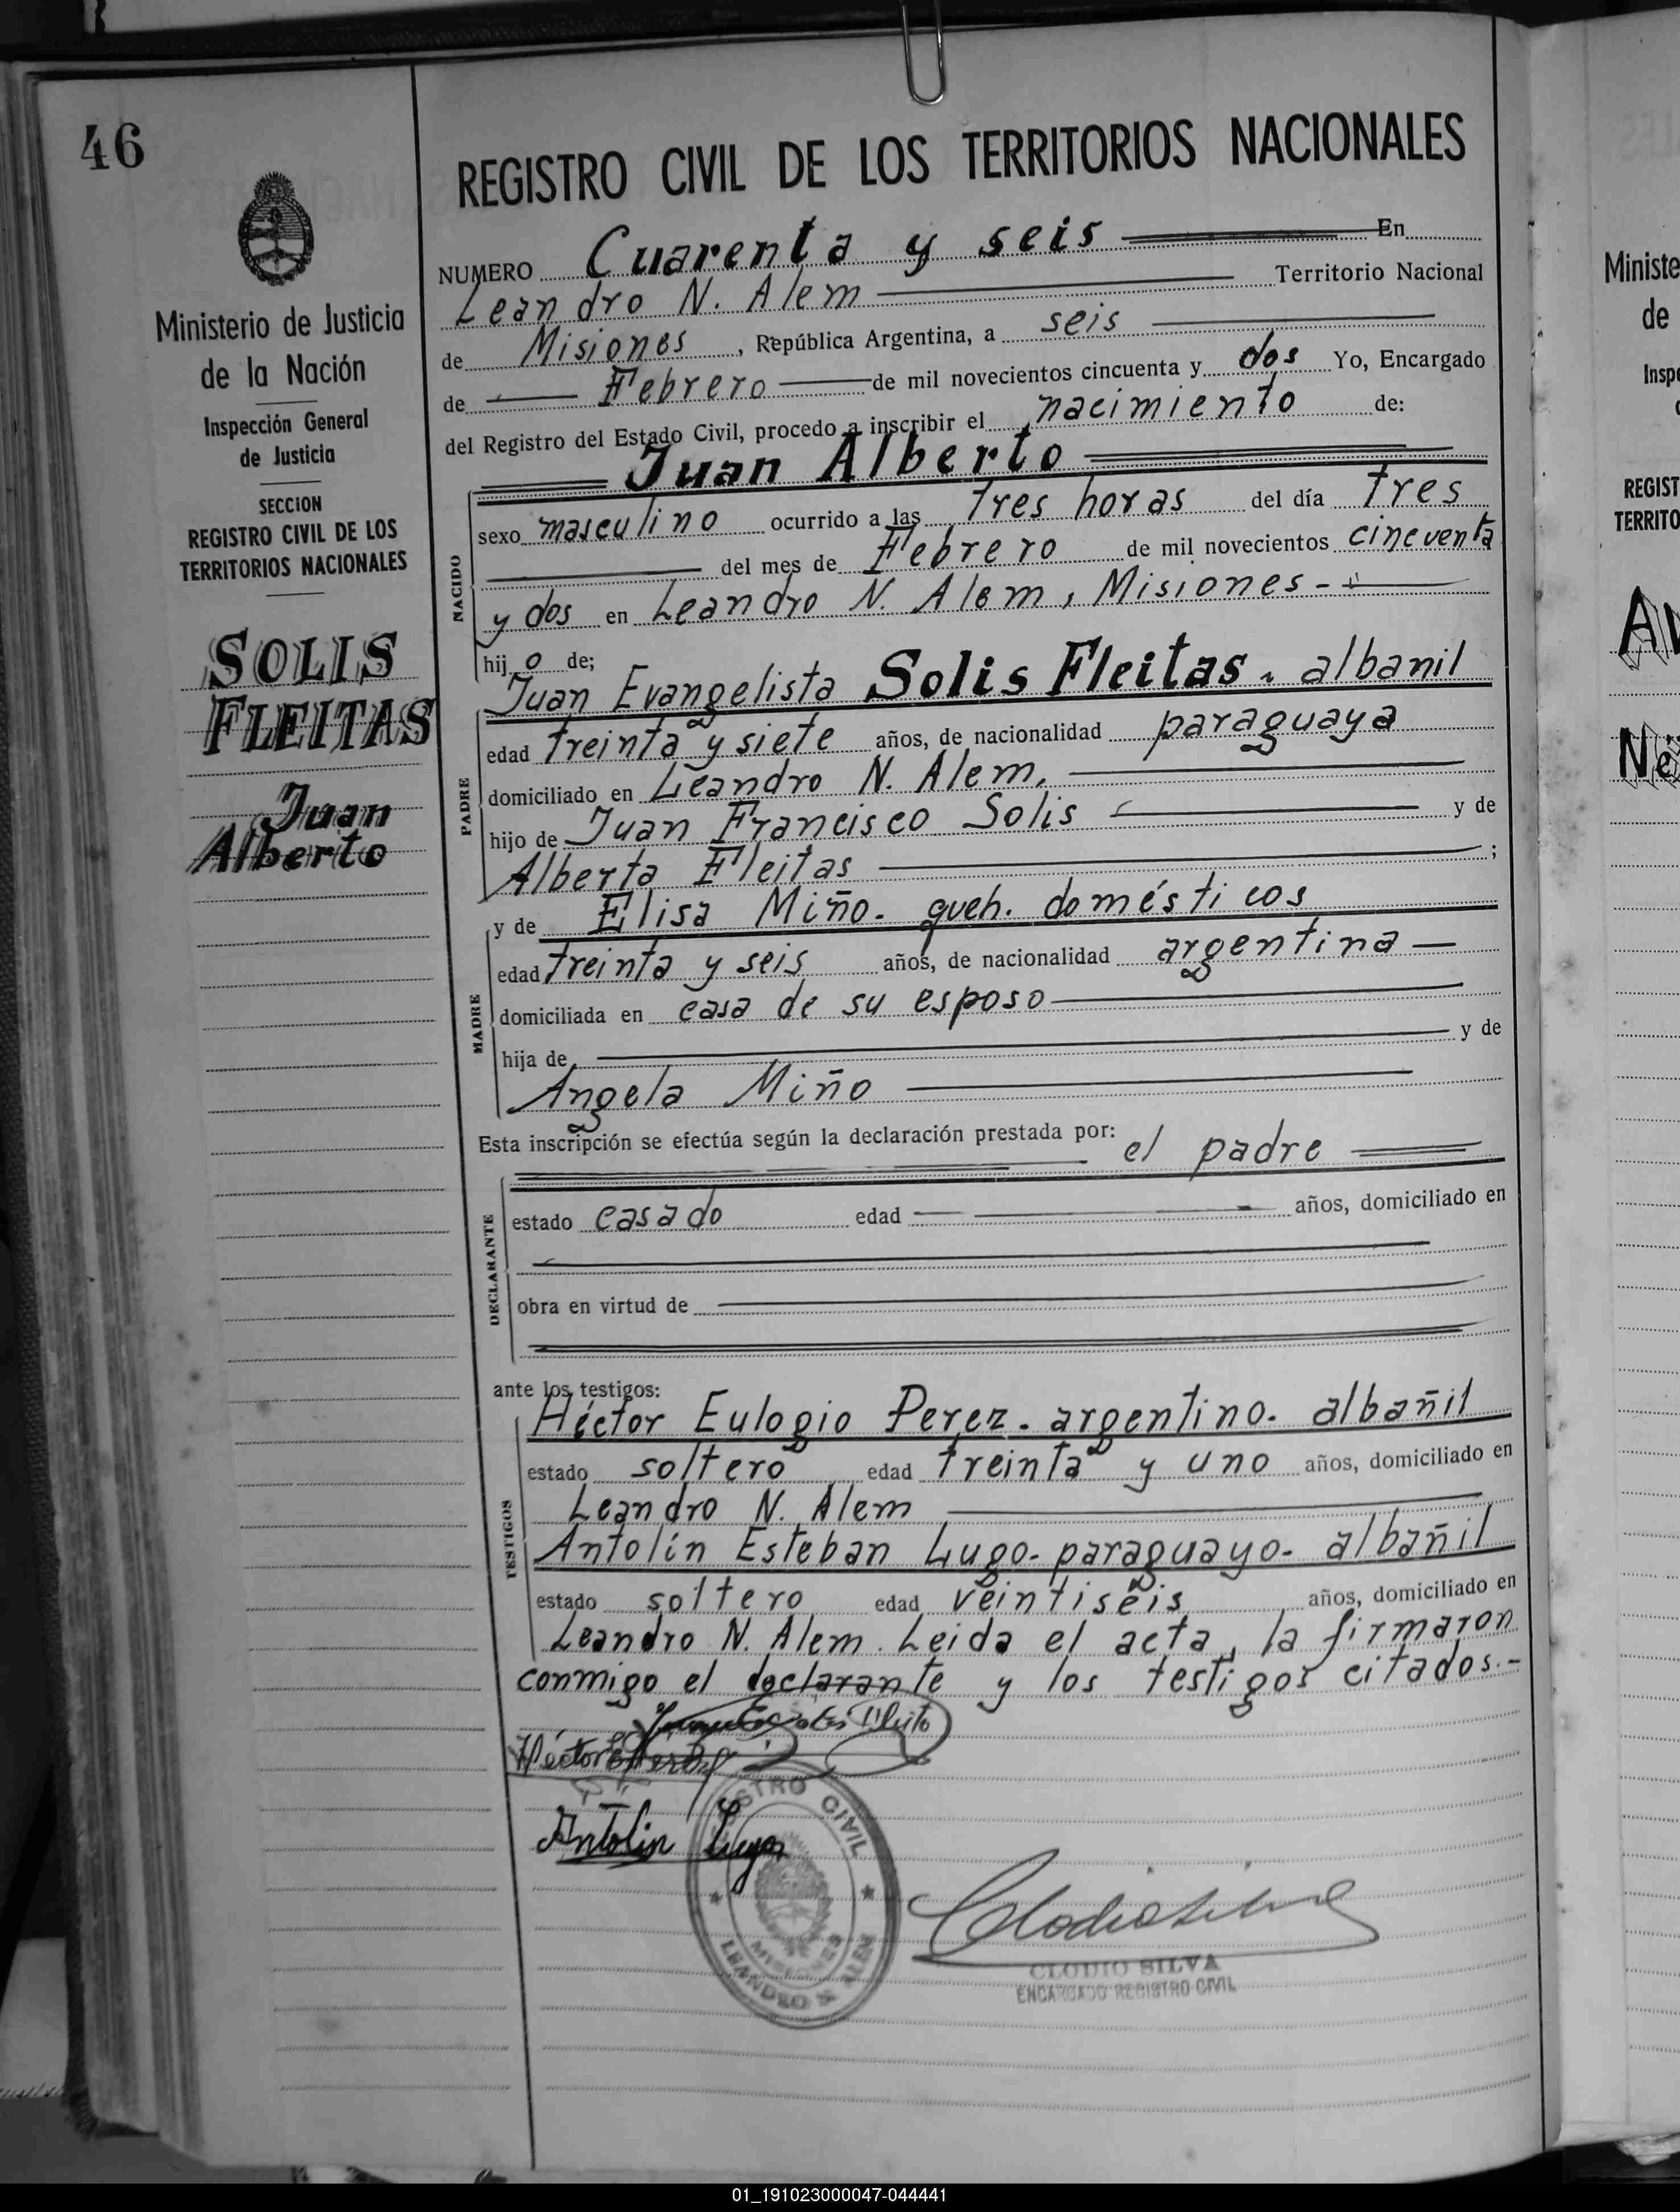 46
Ministerio de Justicia
de la Nación
Inspección General
de Justicia
SECCION
REGISTRO CIVIL DE LOS
TERRITORIOS NACIONALES
SOLIS
FLEITAS
Juan
Alberto
REGISTRO CIVIL DE LOS TERRITORIOS NACIONALES
NUMERO Cuarenta y seis En
Leandro N. Alem Territorio Nacional
de Misiones, República Argentina, a seis
de Febrero de mil novecientos cincuenta y dos Yo, Encargado
del Registro del Estado Civil, procedo a inscribir el nacimiento de:
Juan Alberto
NACIDO
sexo masculino ocurrido a las tres horas del día tres
del mes de Febrero de mil novecientos cincuenta
y dos en Leandro N. Alem, Misiones-
hijo de;
Juan Evangelista Solis Fleitas. albanil
PADRE
edad treinta y siete años, de nacionalidad paraguaya
domiciliado en Leandro N. Alem,
hijo de Juan Francisco Solis y de
Alberta Fleitas ;
y de Elisa Miño. queh. domésticos
MADRE
edad treinta y seis años, de nacionalidad argentina
domiciliada en casa de su esposo
hija de y de
Angela Miño
Esta inscripción se efectúa según la declaración prestada por: el padre
DECLARANTE
estado casado edad años, domiciliado en
obra en virtud de
ante los testigos:
Héctor Eulogio Perez. argentino. albañil
TESTIGOS
estado soltero edad treinta y uno años, domiciliado en
Leandro N. Alem
Antolín Esteban Lugo- paraguayo- albañil
estado soltero edad veintiseis años, domiciliado en
Leandro N. Alem. Leida el acta, la firmaron
conmigo el declarante y los testigos citados.-
Héctor E Perez
Antolin Lugo
REGISTRO CIVIL
MISIONES
LEANDRO N. ALEM
Clodio Silva
CLODIO SILVA
ENCARGADO REGISTRO CIVIL
Ministe
de
Inspe
REGIST
TERRITO
01_191023000047-044441